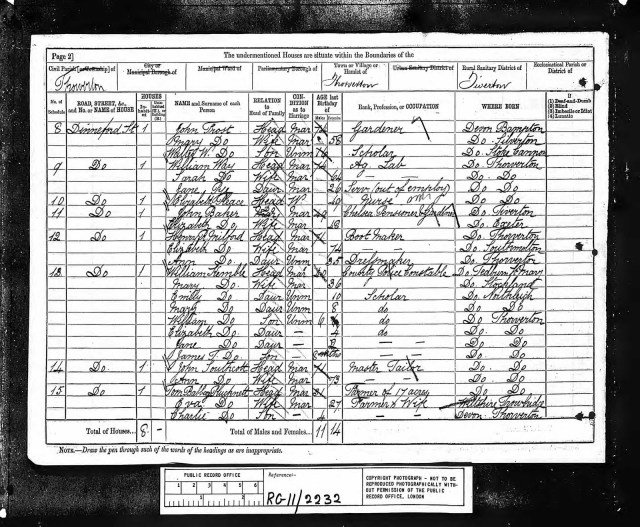 Page 2]
The undermentioned Houses are situate within the Boundaries of the
Civil Parish [or Township] of
City or
Municipal Borough of
Municipal Ward of
Parliamentary Borough of
Town or Village or
Hamlet of
Urban Sanitary District of
Rural Sanitary District of
Ecclesiastical Parish or
District of
Thorverton
Thorverton
Tiverton
No. of
Schedule
ROAD, STREET, &c.,
and No. or NAME of HOUSE
HOUSES
NAME and Surname of each
Person
RELATION
to
Head of Family
CON-
DITION
as to
Marriage
AGE last
Birthday
of
Males
Females
Rank, Profession, or OCCUPATION
WHERE BORN
If
(1) Deaf-and-Dumb
(2) Blind
(3) Imbecile or Idiot
(4) Lunatic
8 Dinneford St 1 John Trost Head Mar Gardener Devon Bampton
Mary Do Wife Mar 58 Do Silverton
Walter W. Do Son Unm Scholar Do Stoke Cannon
9 Do 1 William Way Head Mar Ag. Lab Do Thorverton
Sarah Do Wife Mar 64 Do Do
Jane Daur Mar 26 Serv (out of employ) Do Do
10 Do 1 Elizabeth Head W Nurse Do Do
11 Do 1 John Baker Head Mar Chelsea Pensioner Do Tiverton
Elizabeth Do Wife Mar Do Exeter
12 Do 1 Henry Milford Head Mar Boot Maker Do Thorverton
Elizabeth Do Wife Mar 74 Do Southmolton
Ann Do Daur Unm 35 Dressmaker Do Thorverton
13 Do 1 William Kemble Head Mar County Police Constable Do
Mary Do Wife Mar 36 Do Stockland
Emily Do Daur Unm 10 Scholar Do Northleigh
Mary Do Daur Unm 8 do Do Do
William Do Son Unm 6 do Do Thorverton
Elizabeth Do Daur — 4 do Do Do
Jane Do Daur — Do Do
James T. Do Son — months Do Do
14 Do 1 John Southcott Head Mar Master Tailor Do Do
Ann Do Wife Mar 73 Do Do
15 Do 1 Head Mar Farmer of 17 acres Do Do
Eva Do Wife Mar 27 Farmer's Wife Wiltshire Trowbridge
Charlie Do Son — Devon Thorverton
Total of Houses... 8 —
Total of Males and Females... 11 14
NOTE.—Draw the pen through such of the words of the headings as are inappropriate.
PUBLIC RECORD OFFICE
1 2 3 4 5 6
1 2
Reference:-
RG 11/2232
COPYRIGHT PHOTOGRAPH - NOT TO BE
REPRODUCED PHOTOGRAPHICALLY WITH-
OUT PERMISSION OF THE PUBLIC
RECORD OFFICE, LONDON